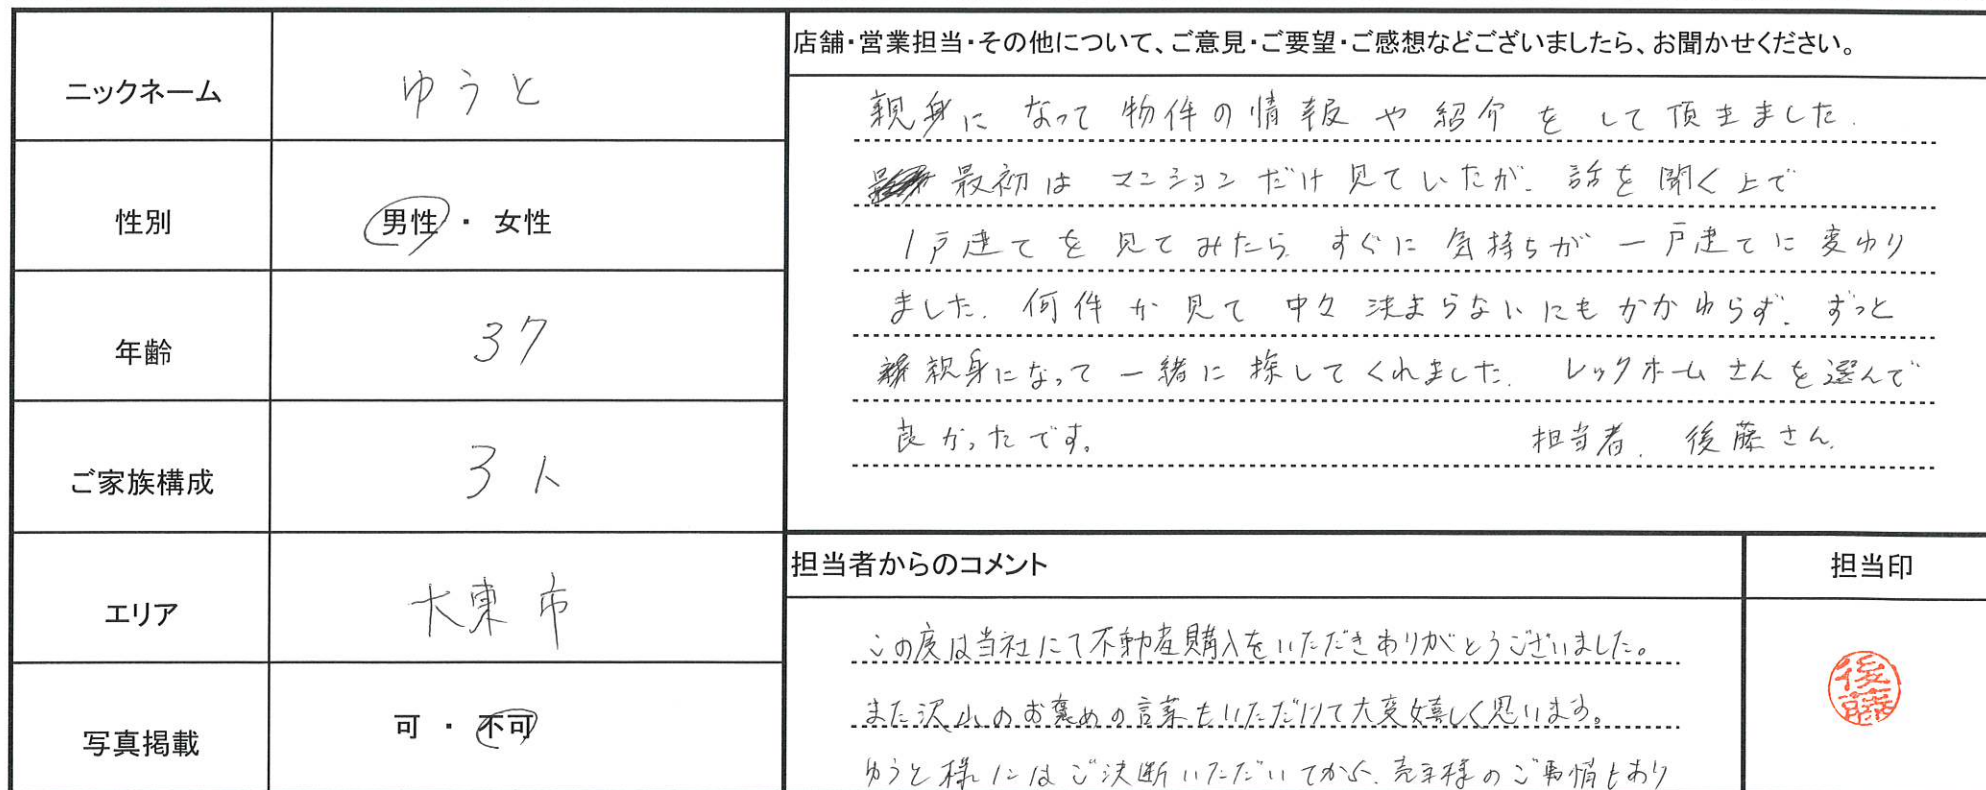 ニックネーム ゆうと
性別 男性 ・ 女性
年齢 37
ご家族構成 3人
エリア 大東市
写真掲載 可 ・ 不可
店舗・営業担当・その他について、ご意見・ご要望・ご感想などございましたら、お聞かせください。
親身になって物件の情報や紹介をして頂きました.
最初はマンションだけ見ていたが、話を聞く上で
1戸建てを見てみたら、すぐに気持ちが一戸建てに変わり
ました。何件か見て中々決まらないにもかかわらず、ずっと
親身になって一緒に探してくれました。レックホームさんを選んで
良かったです。 担当者. 後藤さん.
担当者からのコメント 担当印
この度は当社にて不動産購入をいただきありがとうございました。
また沢山のお褒めの言葉もいただけて大変嬉しく思います。
ゆうと様にはご決断いただいてから、売主様のご事情もあり
後藤